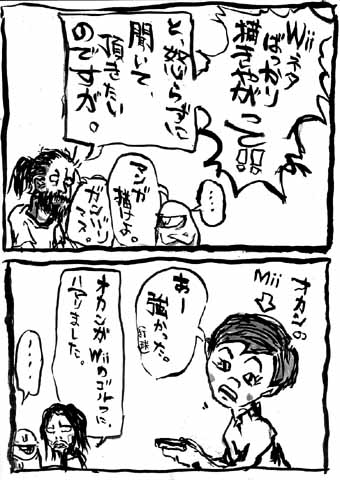 Wiiネタ
ばっかり
描きやがって!!
と、怒らずに
聞いて、
頂きたい
のですが。
・・・
マンガ
描けよ。
ガンバリ
マス。
オカンの
Mii
あー
強かった。
オカンがWiiのゴルフに、
ハマりました。
・・・・